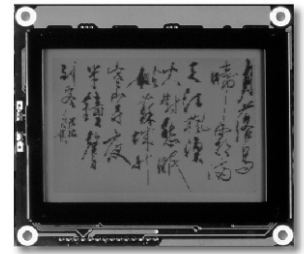 月落烏
啼霜滿
天江楓漁
火對愁眠
姑蘇城外
寒山寺夜
半鐘聲
到客